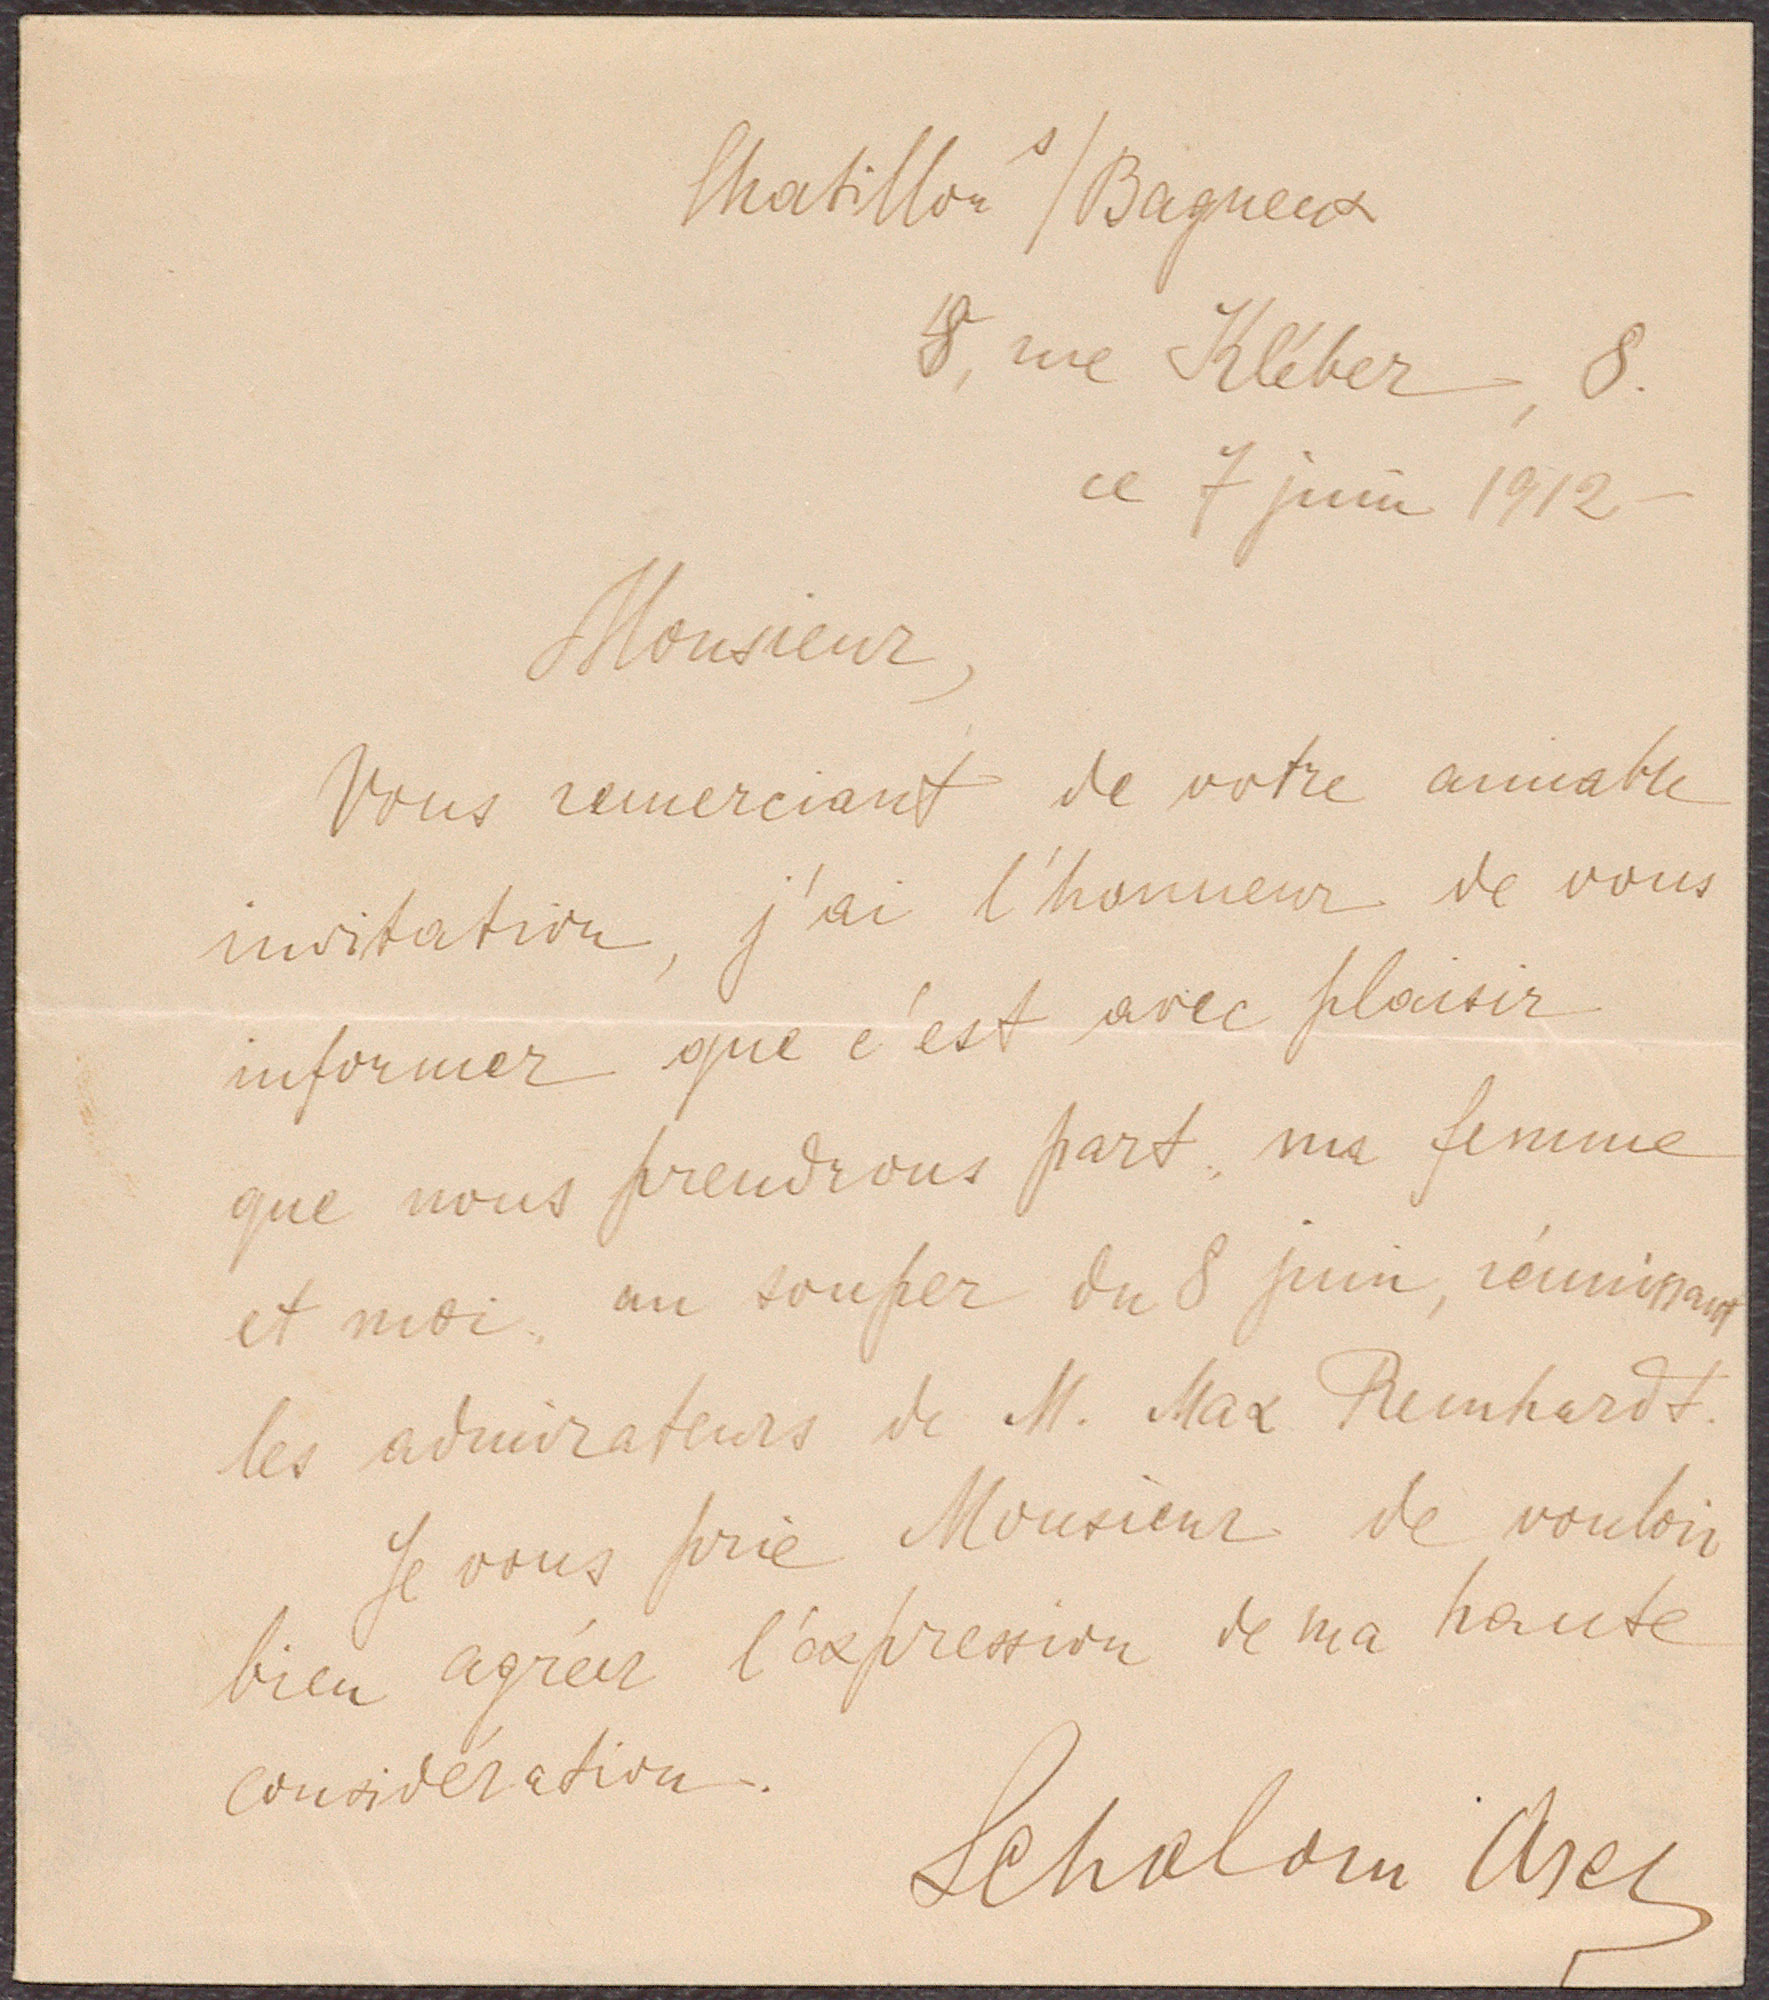 Chatillon s/Bagneux
8, rue Kléber, 8.
ce 7 juin 1912 –
Monsieur,
Vous remerciant de votre aimable
invitation, j'ai l'honneur de vous
informer que c'est avec plaisir
que nous prendrons part, ma femme
et moi, au souper du 8 juin, réunissant
les admirateurs de M. Max Reinhardt.
Je vous prie Monsieur de vouloir
bien agréer l'expression de ma haute
considération.
Scholom Asch